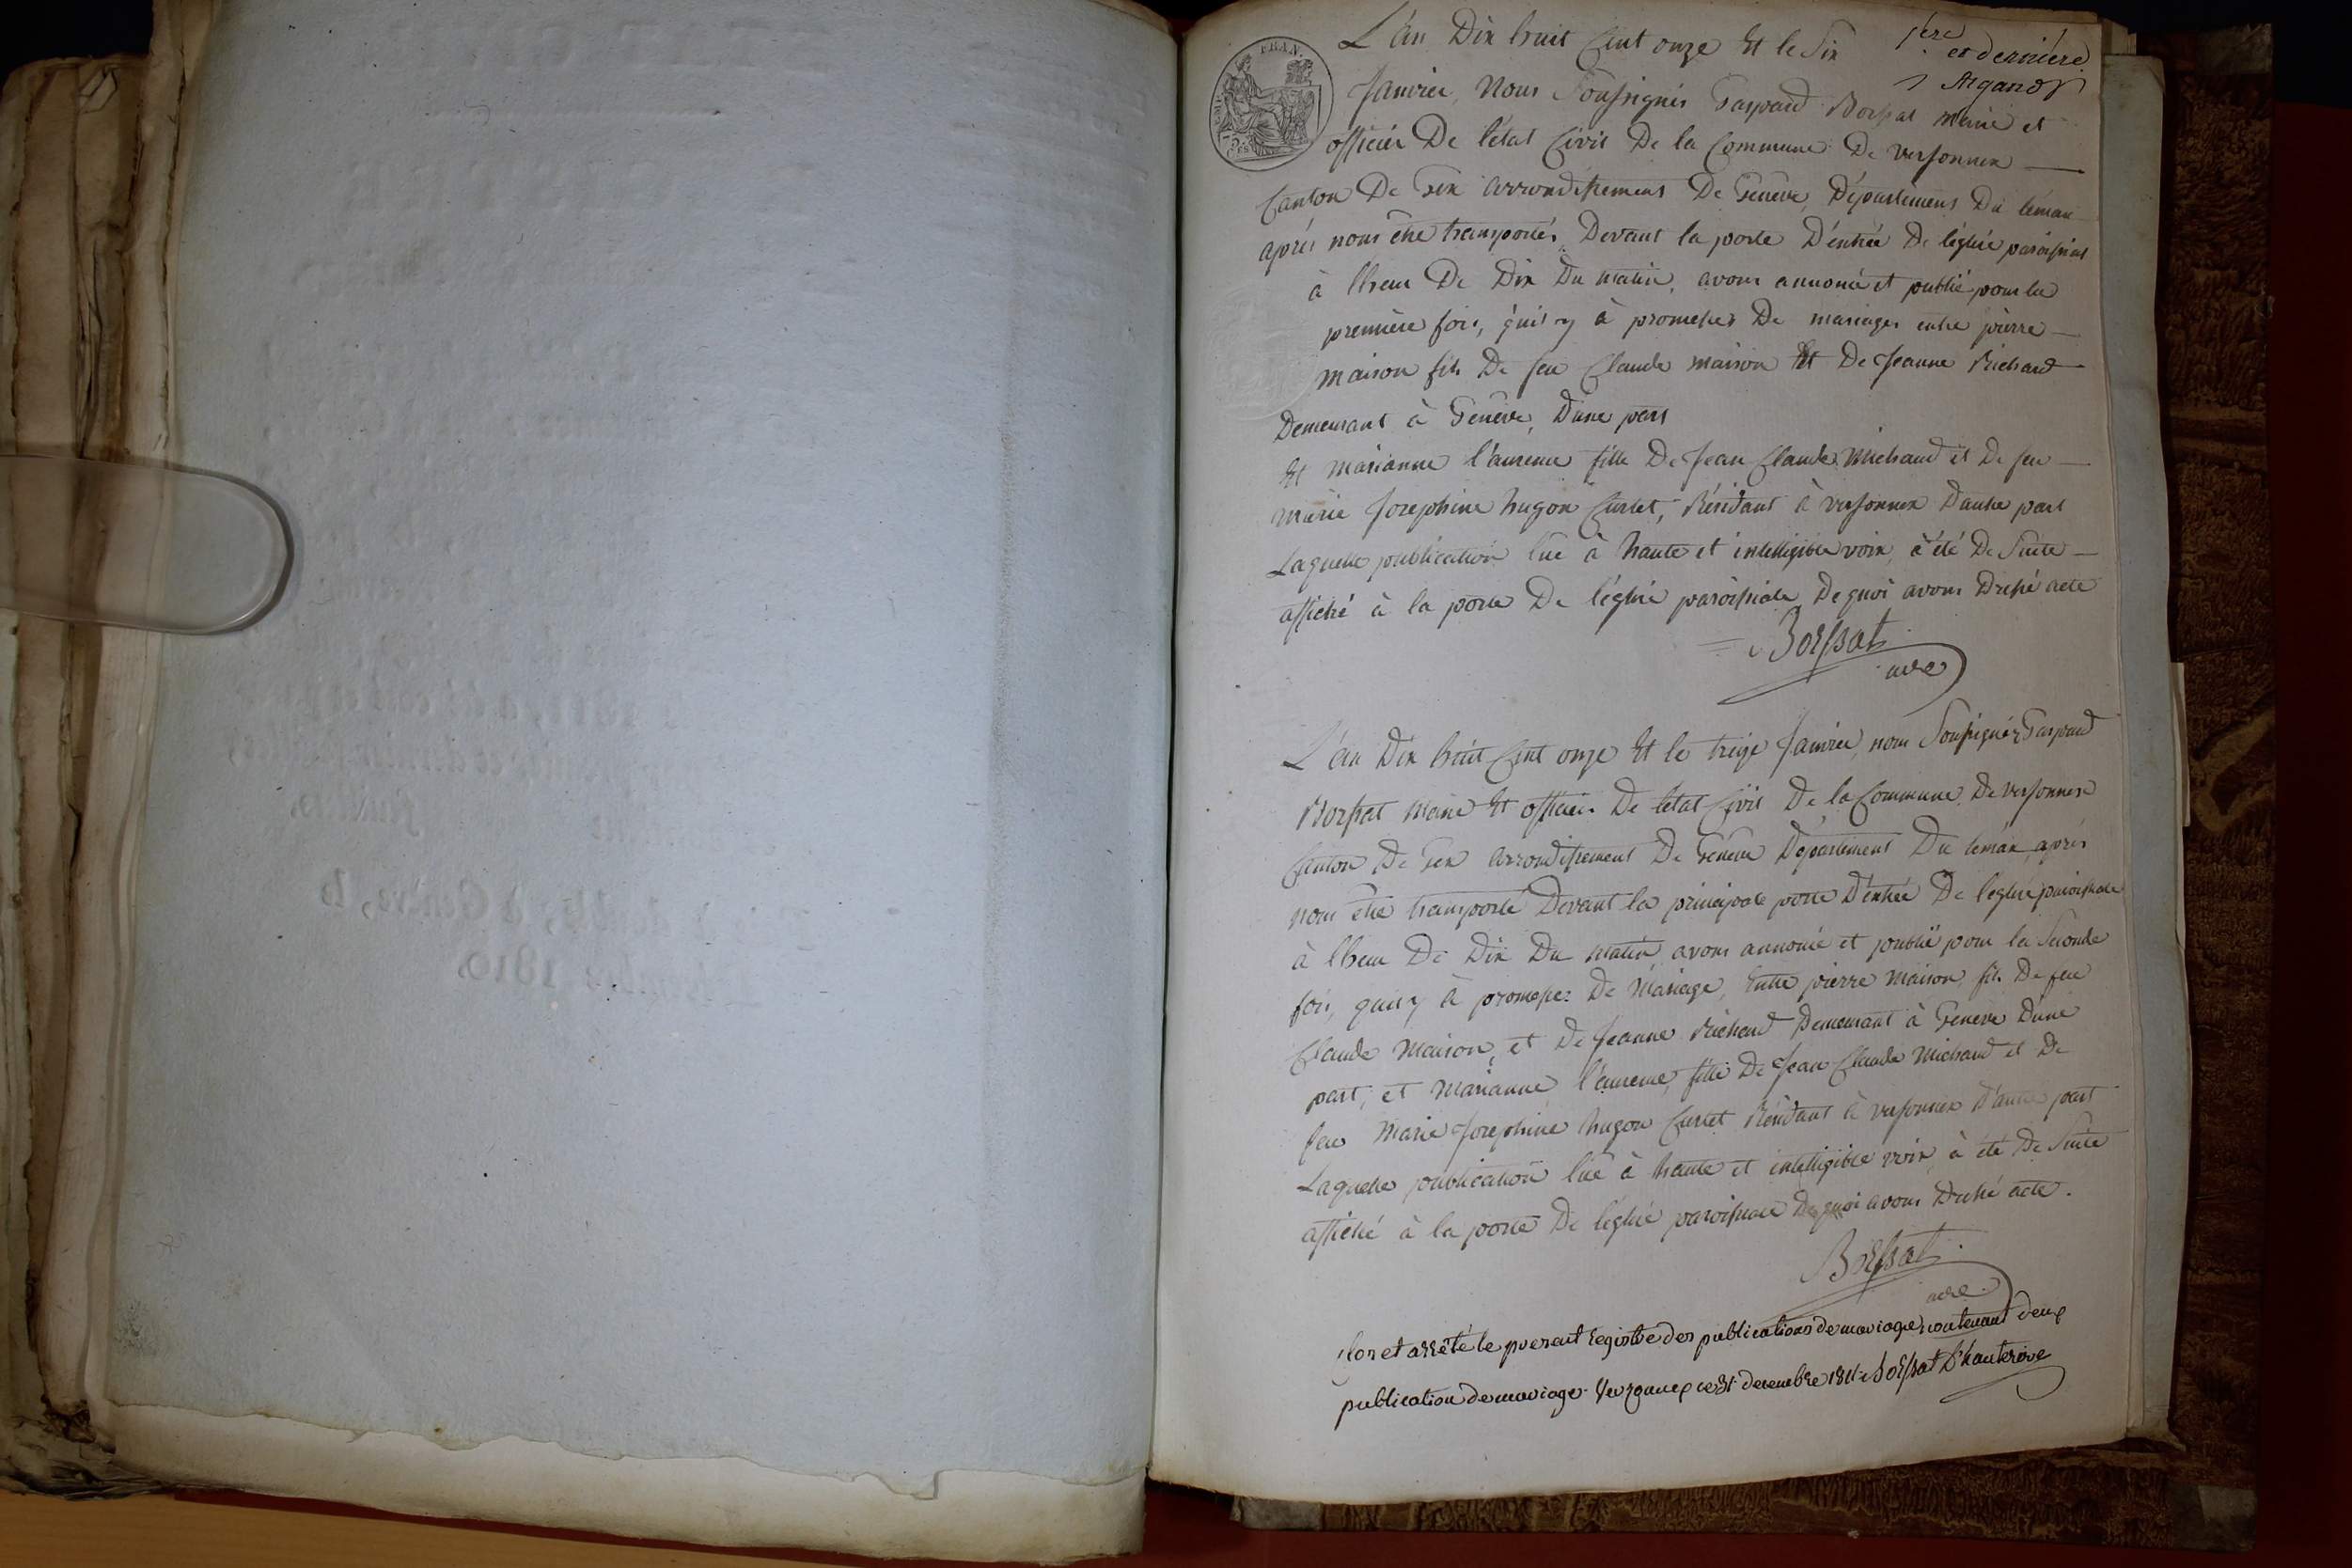 1ère
et dernière
Argand
L'an Dix huit Cent onze Et le Six
Janvier, Nous Soussignés Gaspard Boissat maire et
officier De l'état Civil De la Commune De versonnex
Canton De Gex arrondissement De Genève, Département Du léman
après nous être transportés Devant la porte D'entrée De l'église paroissial
à l'heur De Dix Du matin, avons annoncé et publié pour la
première fois, qu'il y à promesses De mariages entre pierre
maison fils De feu Claude maison Et De Jeanne Richard
Demeurant à Genève, D'une part
Et marianne l'aurence fille De Jean Claude Michaud et De feu
marie Josephine hugon Curlet, Résidant à versonnex D'autre part
Laquelle publication lue à haute et intelligible voix, à été De Suite
affiché à la porte De l'église paroissiale De quoi avons Dressé acte
Boissat
L'an Dix huit Cent onze Et le treize Janvier, nous Soussignés Gaspard
Boissat Maire Et officier De letat Civil De la Commune De versonnex
Canton De Gex arrondissement De Genève Département Du léman, après
nous être transporté Devant la principale porte D'entrée De l'église paroissiale
à l'heur De Dix Du matin, avons annoncé et publié pour la Seconde
fois, qu'il y à promesses De Mariage, Entre pierre Maison, fils De feu
Claude Maison, et De Jeanne Richard Demeurant à Genève D'une
part, et Marianne l'aurence, fille De Jean Claude Michaud et De
feu Marie Josephine hugon Curlet Résidant à versonnex D'autre part
Laquelle publication lue à haute et intelligible voix, à été De Suite
affiché à la porte De l'église paroissiale De quoi avons Dressé acte.
Boissat
Clos et arrêté le present registre des publications de mariages contenant deux
publication de mariage. Versonnex ce 31 decembre 1811. Boissat D'hauterive